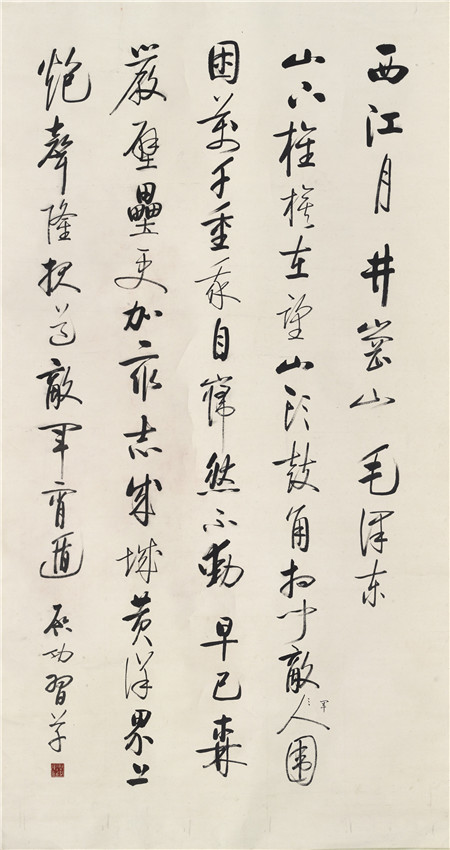 西江月 井崗山 毛泽东
山下旌旗在望山头鼓角相闻敵人圍
軍
困萬千重我自巋然不動 早已森
嚴壁壘更加衆志成城黄洋界上
炮聲隆报道敵军宵遁 启功習草